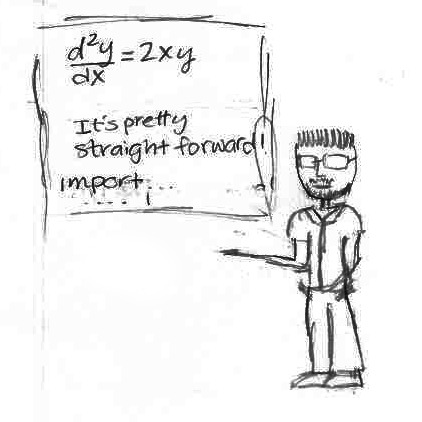 d²y/dx = 2xy
It's pretty
straight forward!
import...
.....;